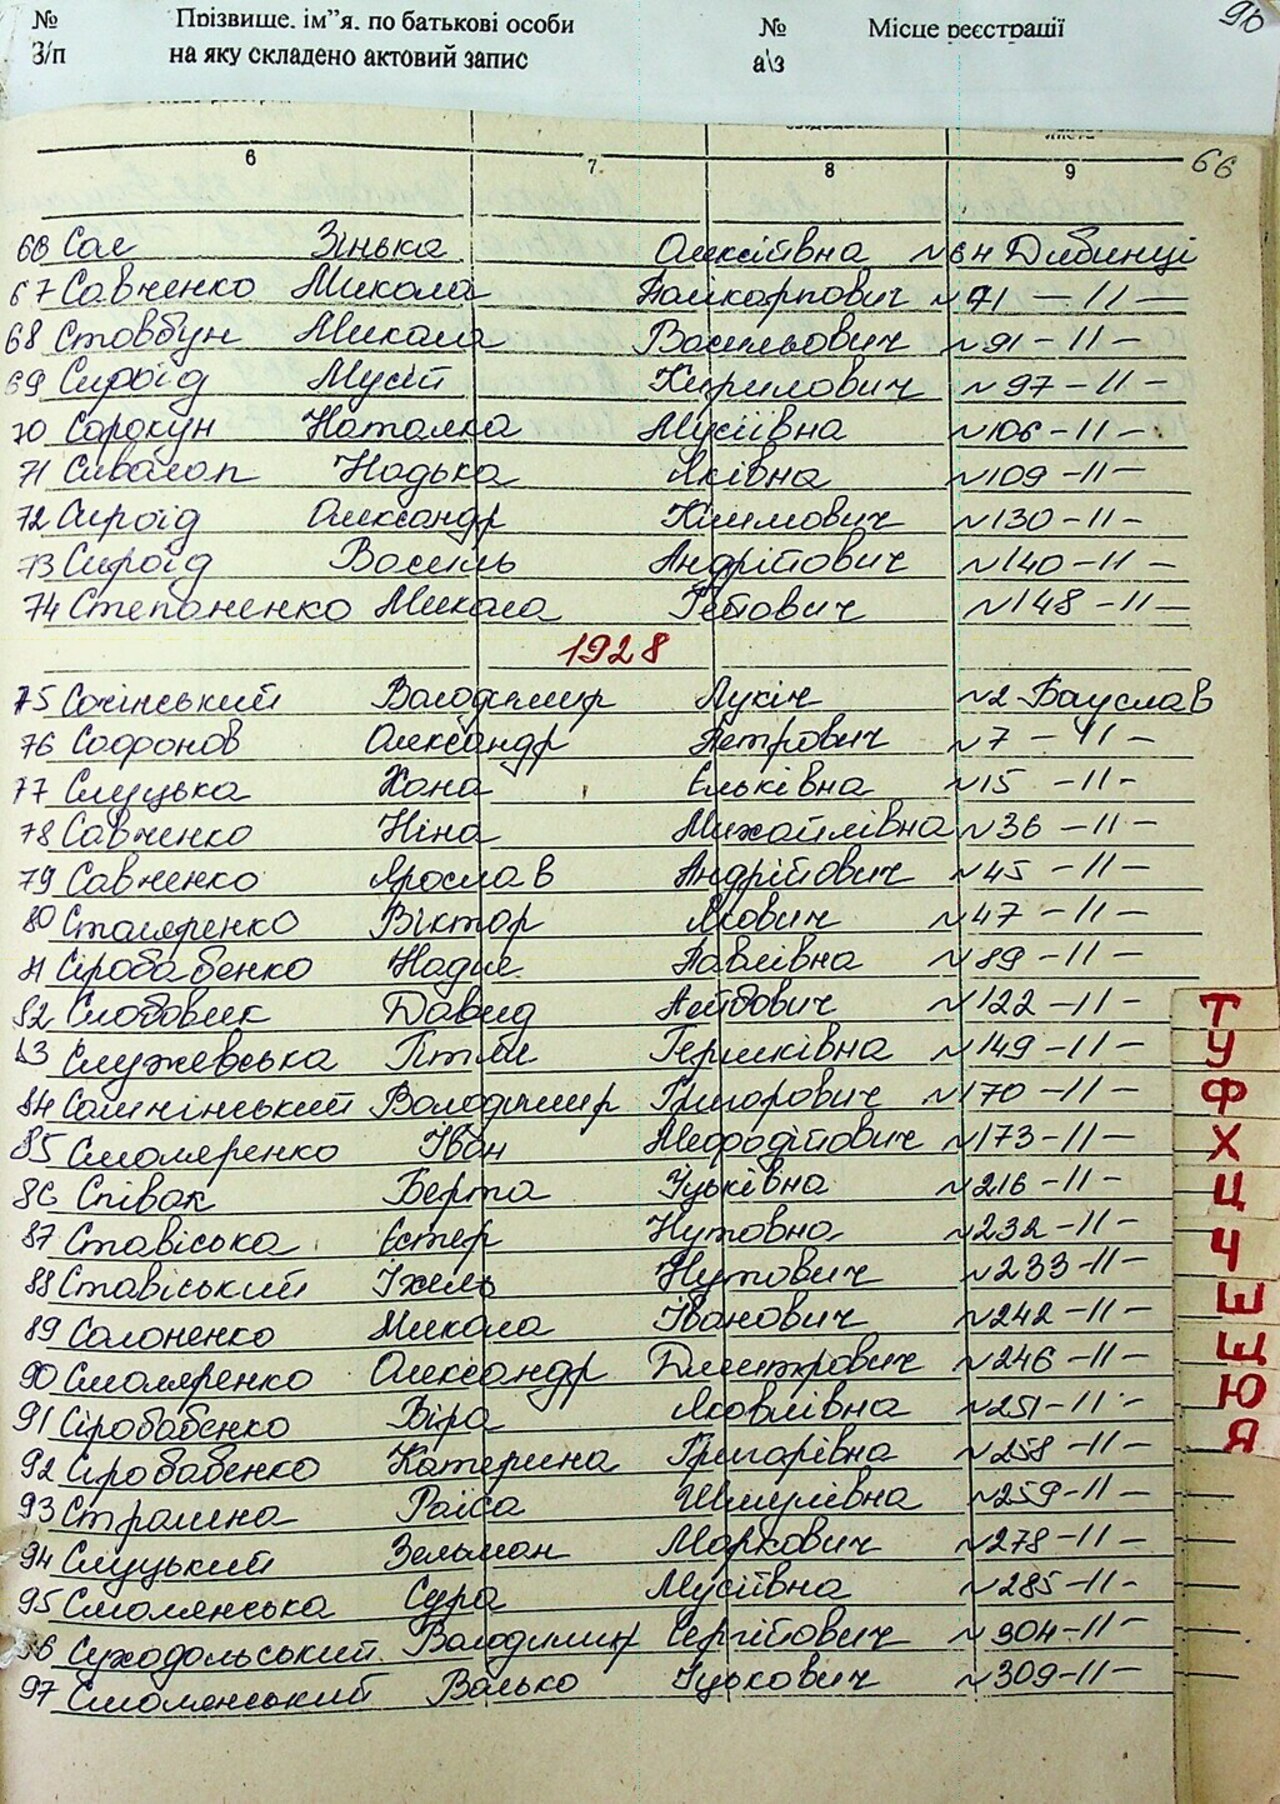 № Прізвище, ім"я, по батькові особи № Місце реєстрації 90
З/п на яку складено актовий запис а\з
6 7 8 9 66
66 Сае Зінька Олексіївна №64 Дибинці
67 Савченко Микола Полікарпович №71 — 11 —
68 Стовбун Микола Васильович №91 – 11 –
69 Сироїд Мусій Кирилович №97 – 11 –
70 Сорокун Наталка Мусіївна №106 – 11 –
71 Надька Яківна №109 – 11 –
72 Сироїд Олександр Климович №130 – 11 –
73 Сироїд Василь Андрійович №140 – 11 –
74 Степаненко Микола №148 – 11 –
1928
75 Сочінський Володимир Лукіч №2 Богуслав
76 Софонов Олександр Петрович №7 – 11 –
77 Слуцька Хана Єльківна №15 – 11 –
78 Савченко Ніна Михайлівна №36 – 11 –
79 Савченко Ярослав Андрійович №45 – 11 –
80 Столяренко Віктор Якович №47 – 11 –
81 Сіробабенко Надія Павлівна №89 – 11 –
82 Слободик Давид Лейбович №122 – 11 –
83 Служевська Гітля Гершківна №149 – 11 –
84 Володимир Григорович №170 – 11 –
85 Смоляренко Іван Мефодійович №173 – 11 –
86 Співак Берта Іцьківна №216 – 11 –
87 Ставіська Естер Нутовна №232 – 11 –
88 Ставіський Іхель Нутович №233 – 11 –
89 Солоненко Микола Іванович №242 – 11 –
90 Смоляренко Олександр Дмитрович №246 – 11 –
91 Сіробабенко Віра Яковлівна №251 – 11 –
92 Сіробабенко Катерина Григорівна №258 – 11 –
93 Страшна Раіса Шмулівна №259 – 11 –
94 Слуцький Зельман Маркович №278 – 11 –
95 Смолянська Сура Мусіївна №285 – 11 –
96 Суходольський Володимир Сергійович №304 – 11 –
97 Смолянський Валько Іцькович №309 – 11 –
Т
У
Ф
Х
Ц
Ч
Ш
Щ
Ю
Я